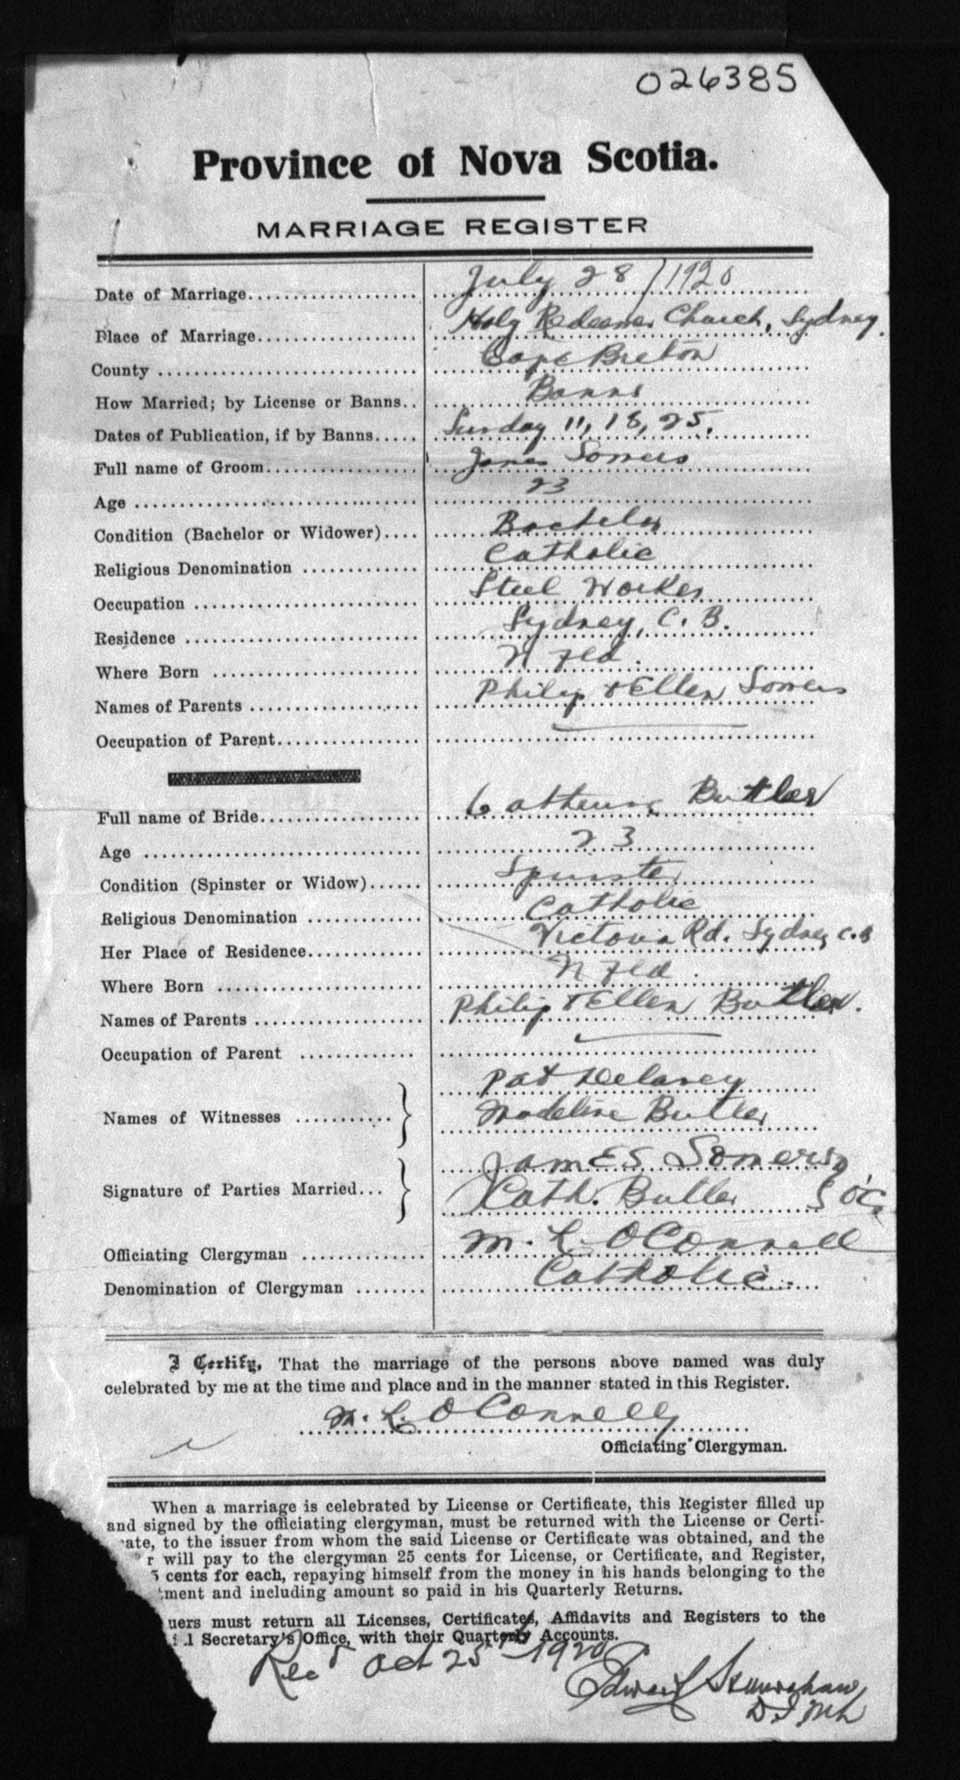 026385
Province of Nova Scotia.
MARRIAGE REGISTER
Date of Marriage.................. July 28/1920
Place of Marriage................. Holy Redeemer Church, Sydney.
County ........................... Cape Breton
How Married; by License or Banns.. Banns
Dates of Publication, if by Banns..... Sunday 11, 18, 25.
Full name of Groom................ James Somers
Age .............................. 23
Condition (Bachelor or Widower).... Bachelor
Religious Denomination ............ Catholic
Occupation ....................... Steel Worker
Residence ........................ Sydney, C. B.
Where Born ....................... N Fld.
Names of Parents ................. Philip & Ellen Somers
Occupation of Parent..............
Full name of Bride................ Catherine Butler
Age .............................. 23
Condition (Spinster or Widow)...... Spinster
Religious Denomination ............ Catholic
Her Place of Residence............ Victoria Rd. Sydney C.B
Where Born ....................... N Fld.
Names of Parents ................. Philip & Ellen Butler.
Occupation of Parent ............
Pat Delaney
Names of Witnesses ........... } Madeline Butler
James Somers
Signature of Parties Married... } Cath. Butler
Officiating Clergyman ............. M. L. O'Connell
Denomination of Clergyman ........ Catholic.
I Certify, That the marriage of the persons above named was duly
celebrated by me at the time and place and in the manner stated in this Register.
M. L. O'Connell
Officiating Clergyman.
When a marriage is celebrated by License or Certificate, this Register filled up
and signed by the officiating clergyman, must be returned with the License or Certi-
ate, to the issuer from whom the said License or Certificate was obtained, and the
r will pay to the clergyman 25 cents for License, or Certificate, and Register,
5 cents for each, repaying himself from the money in his hands belonging to the
tment and including amount so paid in his Quarterly Returns.
uers must return all Licenses, Certificates, Affidavits and Registers to the
l Secretary's Office, with their Quarterly Accounts.
Rec'd Oct 25th 1920
Edward